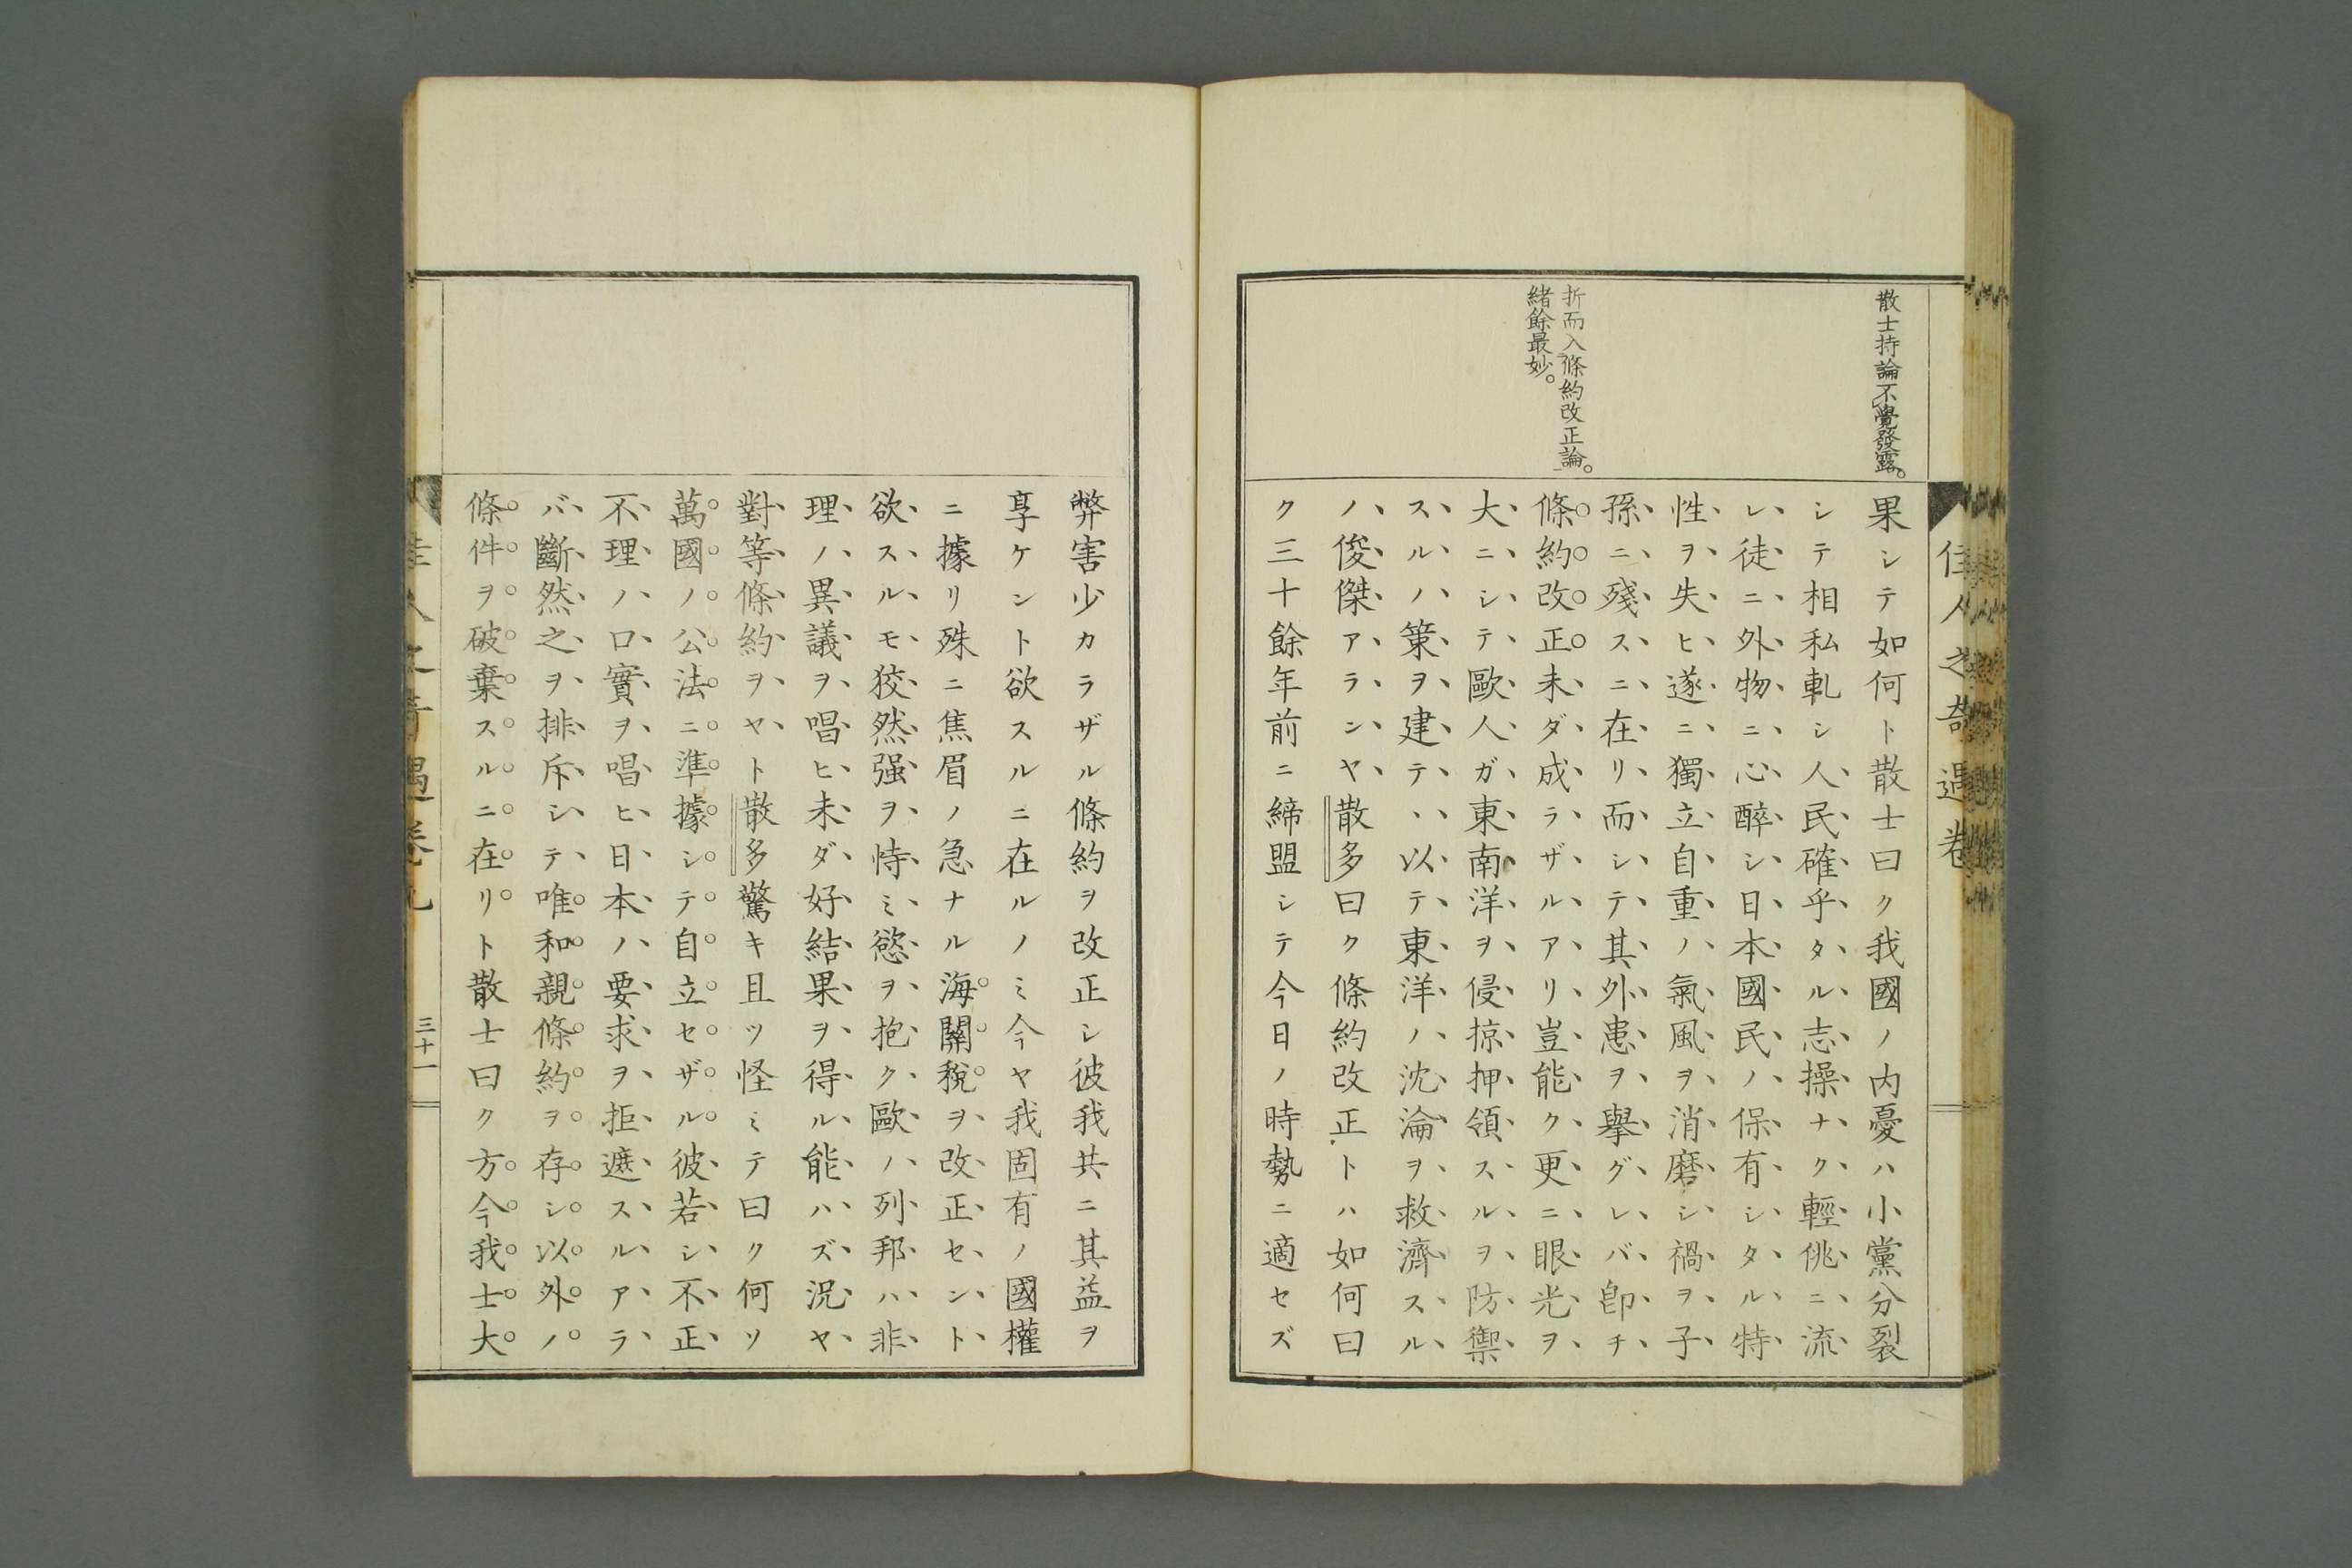 佳人之奇遇卷
散士持論不覺發露。
折而入條約改正論。
緒餘最妙。
果シテ如何ト散士曰ク我國ノ内憂ハ小黨分裂
シテ相私軋シ人民確乎タル志操ナク輕佻ニ流
レ徒ニ外物ニ心醉シ日本國民ノ保有シタル特
性ヲ失ヒ遂ニ獨立自重ノ氣風ヲ消磨シ禍ヲ子
孫ニ殘スニ在リ而シテ其外患ヲ擧グレバ卽チ
條約改正未ダ成ラザルアリ豈能ク更ニ眼光ヲ
大ニシテ歐人ガ東南洋ヲ侵掠押領スルヲ防禦
スルノ策ヲ建テ、以テ東洋ノ沈淪ヲ救濟スル
ノ俊傑アランヤ散多曰ク條約改正トハ如何曰
ク三十餘年前ニ締盟シテ今日ノ時勢ニ適セズ
弊害少カラザル條約ヲ改正シ彼我共ニ其益ヲ
享ケント欲スルニ在ルノミ今ヤ我固有ノ國權
ニ據リ殊ニ焦眉ノ急ナル海關稅ヲ改正セント
欲スルモ狡然强ヲ恃ミ慾ヲ抱ク歐ノ列邦ハ非
理ノ異議ヲ唱ヒ未ダ好結果ヲ得ル能ハズ況ヤ
對等條約ヲヤト散多驚キ且ツ怪ミテ曰ク何ソ
萬國ノ公法ニ準據シテ自立セザル彼若シ不正
不理ノ口實ヲ唱ヒ日本ノ要求ヲ拒遮スルアラ
バ斷然之ヲ排斥シテ唯和親條約ヲ存シ以外ノ
條件ヲ破棄スルニ在リト散士曰ク方今我士大
佳人之奇遇卷九
三十一